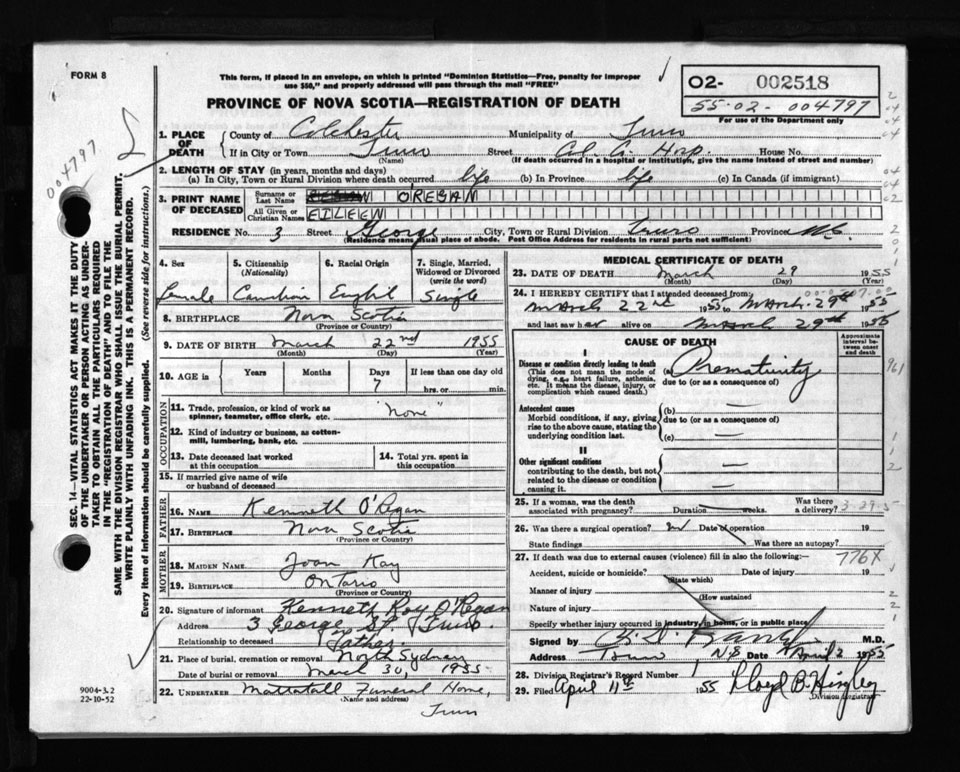 FORM 8
This form, if placed in an envelope, on which is printed "Dominion Statistics—Free, penalty for improper
use $50," and properly addressed will pass through the mail "FREE"
PROVINCE OF NOVA SCOTIA—REGISTRATION OF DEATH
02- 002518
55-02-004797
For use of the Department only
004797
SEC. 14—VITAL STATISTICS ACT MAKES IT THE DUTY
OF THE UNDERTAKER OR PERSON ACTING AS UNDER-
TAKER TO OBTAIN ALL THE PARTICULARS REQUIRED
IN THE "REGISTRATION OF DEATH" AND TO FILE THE
SAME WITH THE DIVISION REGISTRAR WHO SHALL ISSUE THE BURIAL PERMIT.
WRITE PLAINLY WITH UNFADING INK. THIS IS A PERMANENT RECORD.
Every item of information should be carefully supplied. (See reverse side for instructions.)
1. PLACE OF DEATH County of Colchester Municipality of Truro
If in City or Town Truro Street Col. Co. Hosp. House No.
(Name) (If death occurred in a hospital or institution, give the name instead of street and number)
2. LENGTH OF STAY (in years, months and days)
(a) In City, Town or Rural Division where death occurred life (b) In Province life (c) In Canada (if immigrant)
3. PRINT NAME OF DECEASED Surname or Last Name O'REGAN
All Given or Christian Names EILEEN
RESIDENCE No. 3 Street George City, Town or Rural Division Truro Province N.S.
(Residence means usual place of abode. Post Office Address for residents in rural parts not sufficient)
4. Sex Female
5. Citizenship (Nationality) Canadian
6. Racial Origin English
7. Single, Married, Widowed or Divorced (write the word) Single
8. BIRTHPLACE Nova Scotia
(Province or Country)
9. DATE OF BIRTH March 22nd 1955
(Month) (Day) (Year)
10. AGE in Years Months Days 7 If less than one day old hrs. or min.
OCCUPATION
11. Trade, profession, or kind of work as spinner, teamster, office clerk, etc. "None"
12. Kind of industry or business, as cotton-mill, lumbering, bank, etc.
13. Date deceased last worked at this occupation
14. Total yrs. spent in this occupation
15. If married give name of wife or husband of deceased
FATHER
16. NAME Kenneth O'Regan
17. BIRTHPLACE Nova Scotia
(Province or Country)
MOTHER
18. MAIDEN NAME Joan Kay
19. BIRTHPLACE Ontario
(Province or Country)
20. Signature of informant Kenneth Roy O'Regan
Address 3 George St Truro.
Relationship to deceased Father.
21. Place of burial, cremation or removal North Sydney
Date of burial or removal March 30, 1955
22. UNDERTAKER Mattatall Funeral Home,
(Name and Address)
Truro
9004-3.2
22-10-52
MEDICAL CERTIFICATE OF DEATH
23. DATE OF DEATH March 29 1955
(Month) (Day) (Year)
24. I HEREBY CERTIFY that I attended deceased from
March 22nd 1955 to March 29th 1955
and last saw her alive on March 29th 1955
CAUSE OF DEATH
Approximate interval between onset and death
I
Disease or condition directly leading to death
(This does not mean the mode of dying, e.g., heart failure, asthenia, etc. It means the disease, injury, or complication which caused death.)
(a) Prematurity
due to (or as a consequence of)
961
Antecedent causes
Morbid conditions, if any, giving rise to the above cause, stating the underlying condition last.
(b) —
due to (or as a consequence of)
(c) —
II
Other significant conditions
contributing to the death, but not related to the disease or condition causing it.
25. If a woman, was the death associated with pregnancy? Duration weeks. Was there a delivery? 3-29-5
26. Was there a surgical operation? Date of operation 19
State findings Was there an autopsy?
27. If death was due to external causes (violence) fill in also the following:— 776X
Accident, suicide or homicide? Date of injury 19
(State which)
Manner of injury
(How sustained
Nature of injury
Specify whether injury occurred in industry, in home, or in public place
Signed by M.D.
Address Truro N.S Date April 2 1955
28. Division Registrar's Record Number
29. Filed April 11th 1955 Lloyd B. Hingley
Division Registrar